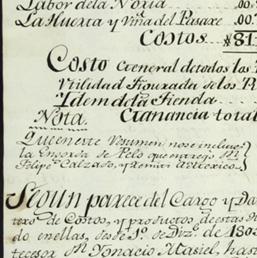 Labor de la Noria 00.
La Huerta y Viña del Pasaxe 00.7
Costos $81
Costo General de todos los
Utilidad Figurada de los
Idem de la Tienda
Nota. Ganancia total
Que en este Resumen no se incluso
la de Pelo que el Sr
Felipe Calzado, y remitir a Mexico
Segun parece del Cargo y Da
de Costos, y productos de estas
do en ellas, desde 1º de Dizᵉ de 1803
tecesor Dⁿ Ignacio Masiel, hasta